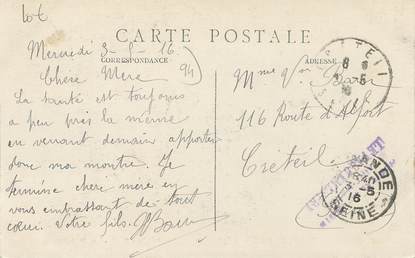 Lot
CARTE POSTALE
CORRESPONDANCE
ADRESSE
Mercredi 3-5-16
94
Chère Mère
La santé est toujours
a peu près la même
en venant demain apporter
donc ma montre. Je
termine chère mère en
vous embrassant de tout
cœur. Votre fils.
Mme Vve
116 Route d'Alfort
Créteil
CRETEIL
SEINE
3-5
16